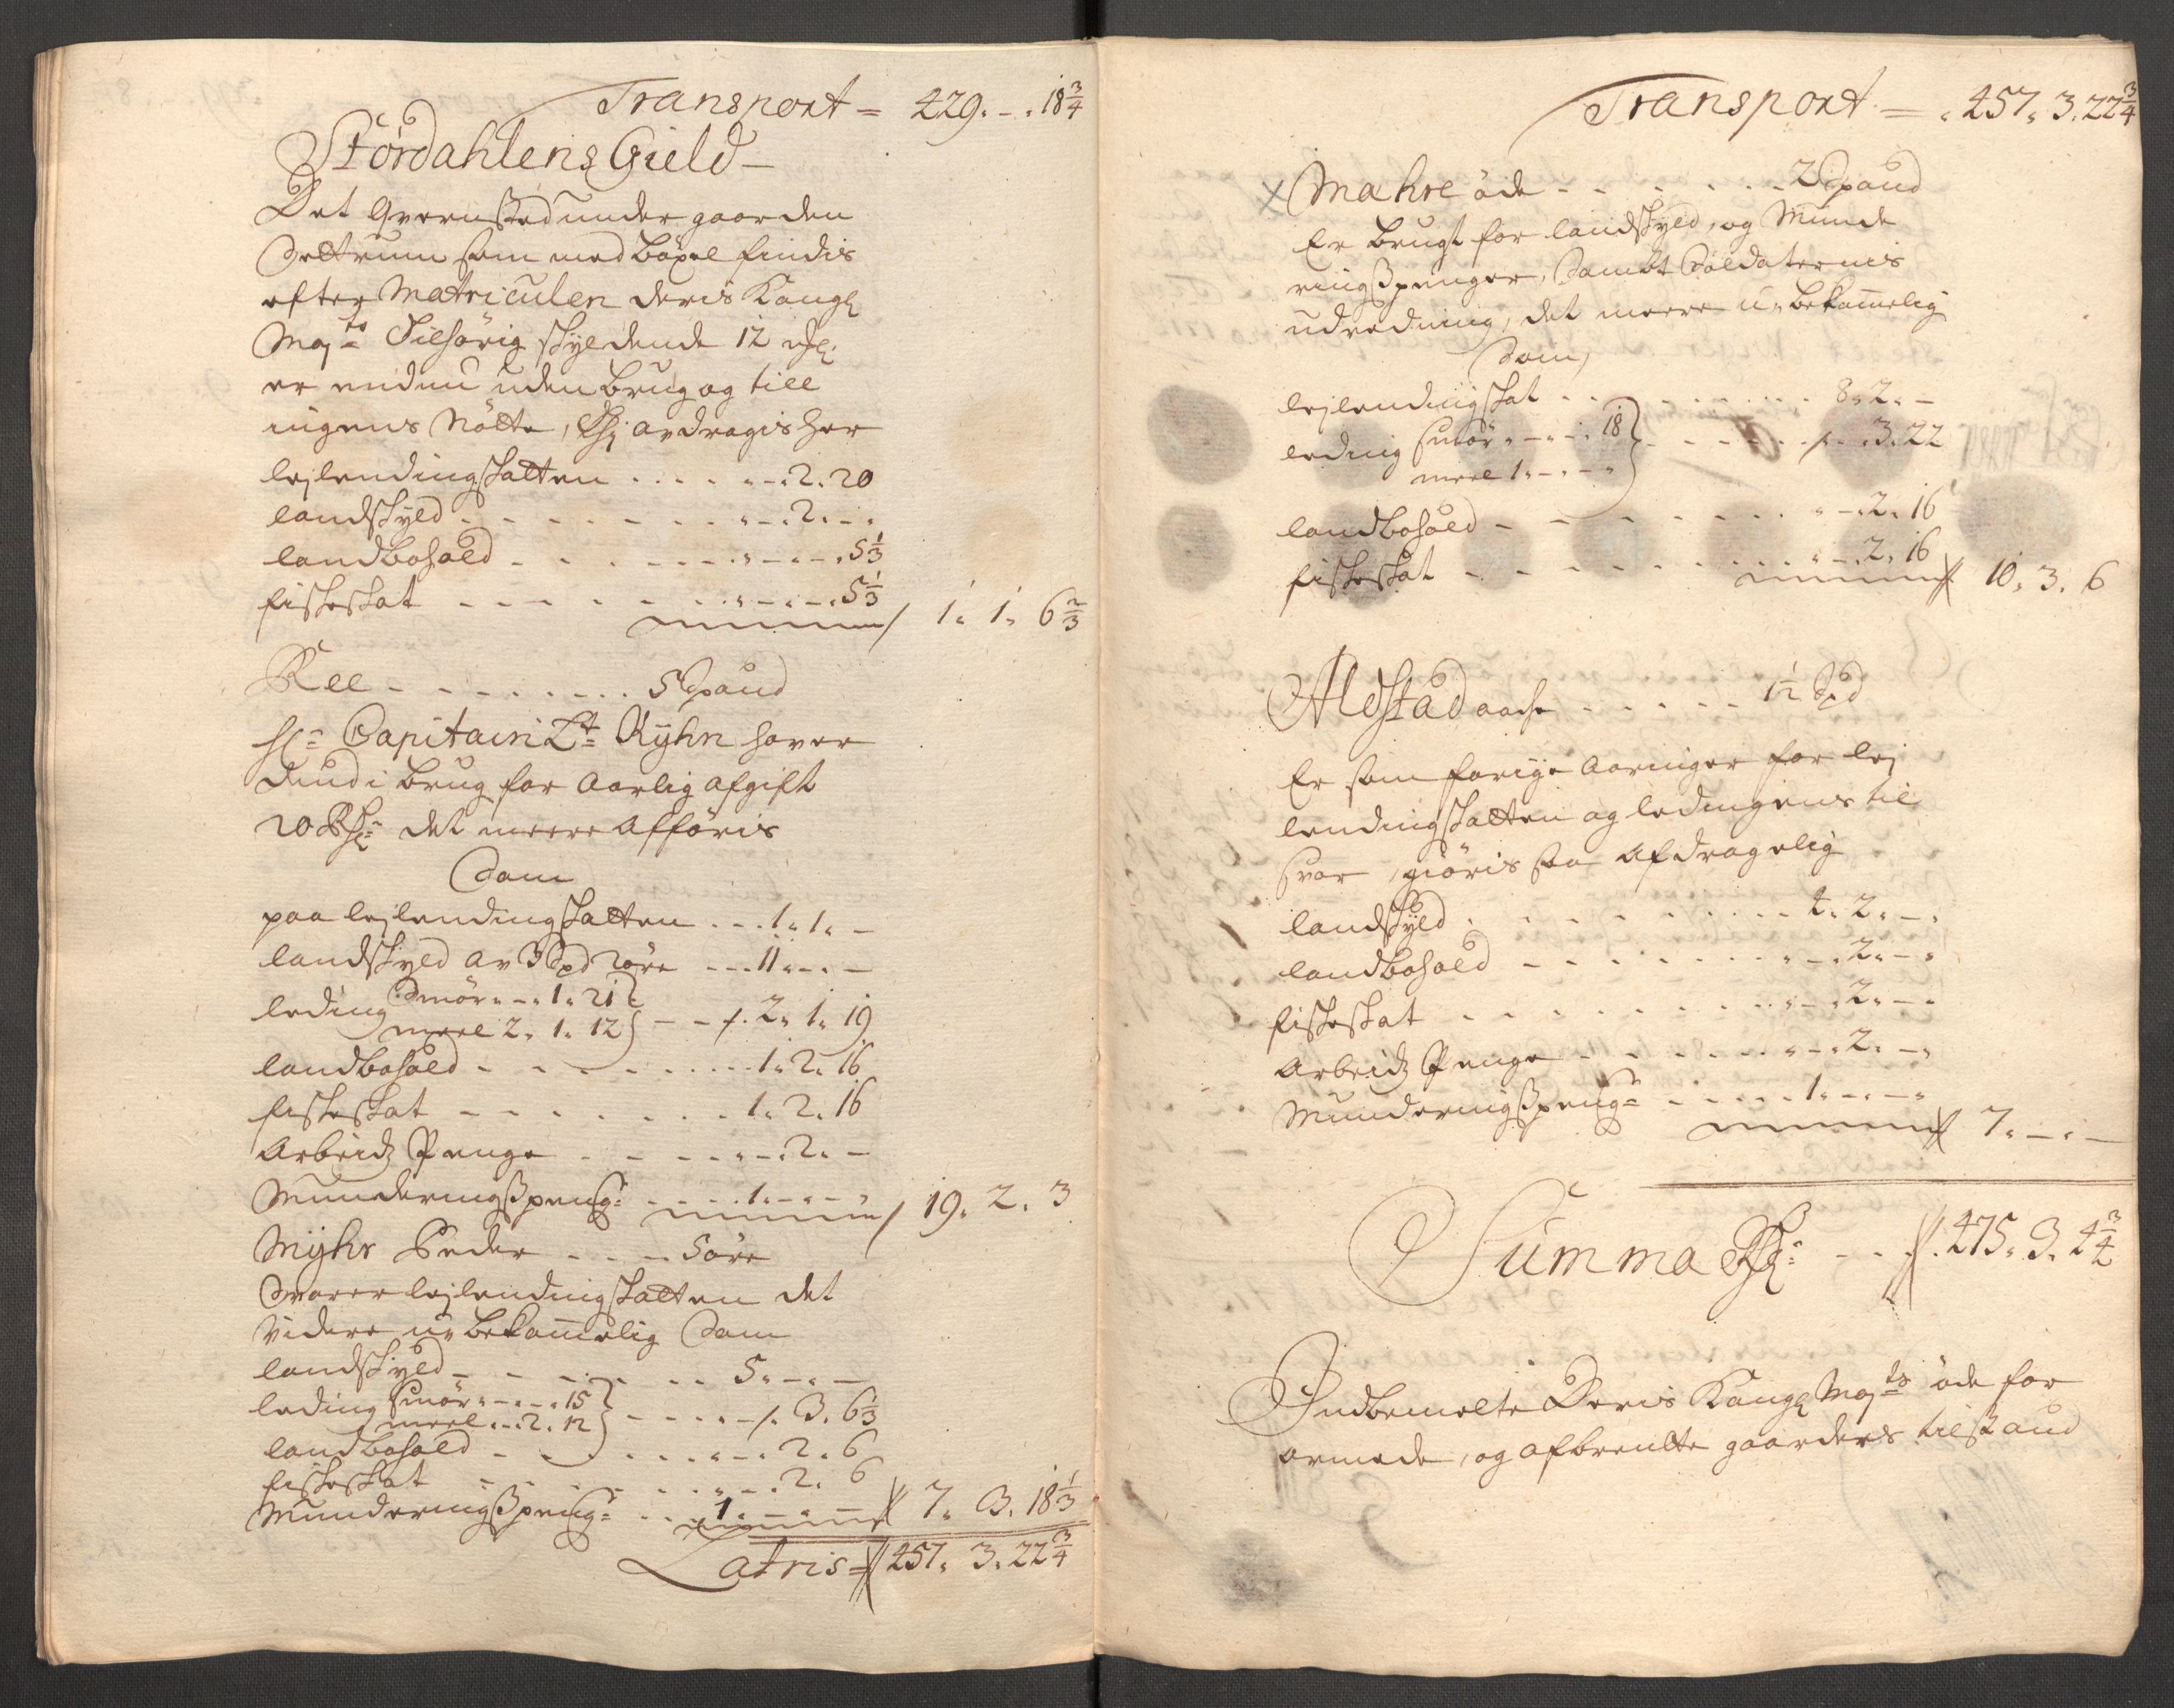 Transport = 429. - . 18 3/4
Størdahlens Gield -
Det Qvernsted under gaarden
Settrum som med böxel findis
efter Matriculen deris Kongl
Maj:ts Tilhörig skyldende 12 mkl:
er endnu uden brug og till
ingens Nötte, Thj avdragis her
lejlendingskatten . . . . „ - . 2. 20
landskyld - - - - - - „ - . 2. - .
landbohold - - - - - - „ - - . 5 1/3
fiskeskat - - - - - - „ - . - . 5 1/3
/ 1. 1. 6 2/3
Ree - - - - - - . . 5 Spand
Hr: Capitain Lt: Kÿhn haver
dend i brug for Aarlig afgift
20 Rdr: det meere Afföris
Som
paa lejlendingskatten . . . 1. 1. -
landskyld av 3 Spd 2 öre - - - 11. - . -
leding Smör . - . 1. 21
meel 2. 1. 12 } - - /. 2. 1. 19
landbohold - - - - - - . . 1. 2. 16
fiskeskat - - - - - - . 1. 2. 16
Arbeidz Penge - - - - „ - . 2. -
Munderingspeng: - - - . 1. - . - . / 19. 2. 3
Mÿhr Peder - - - - 5 öre
Svarer lejlendingskatten det
videre u-bekommelig Som
landskyld - - - - - . . 5. - . -
leding Smör . - . - . 15
meel . . 2. 12 } - - - - - /. 3. 6 1/3
landbohold - - . . . . „ - . 2. 6
fiskeskat - - - - . . „ - . 2. 6
Munderingspeng: - . . 1. - . - // 7. 3. 18 1/3
Latris = // 457. 3. 22 3/4
Transport = . 457. 3. 22 3/4
x Mahre öde - - - - - . . 2 Spand
Er brugt for landskyld, og Munde
ringspenger, Sambt Soldaternis
udredning, det meere u-bekommelig
Som,
lejlendingskat . . - - - - . . . 8. 2. -
leding Smör . - . - . 18
meel 1. - . - . } - - - - - /. - . 3. 22
landbohold - - - - - - . . „ - . 2. 16
fiskeskat - - - - - - . . „ - . 2. 16
// 10. 3. 6
Aldstad aache - - - - - 1 1/2 Spd
Er som forige Aaringer for lej
lendingskatten og ledingens til
svar, giöris saa afdragelig
landskyld . - - - - - - . . 2. 2. - .
landbohold - - - - - - - „ - . 2. - .
fiskeskat - - - - - - - . „ - . 2. - .
Arbeidz Penge - - - - - „ - . 2. - .
Munderingspeng: - - - - - 1. - . - .
// 7. - . -
Summa Rdr: - - - //. 475. 3. 4 3/4
Indbemelte Deris Kongl Maj:ts öde for
armede, og afbrendte gaarders tilstand